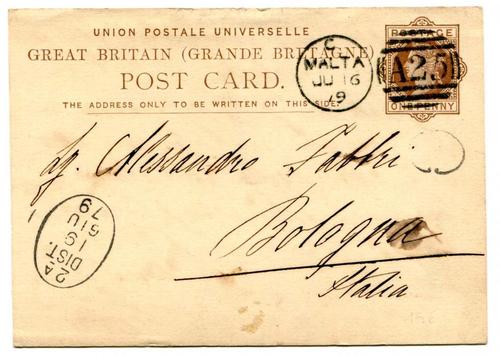 UNION POSTALE UNIVERSELLE
GREAT BRITAIN (GRANDE BRETAGNE)
POST CARD.
THE ADDRESS ONLY TO BE WRITTEN ON THIS SIDE.
C
MALTA
JU 16
79
POSTAGE
A25
ONE PENNY
Sg. Alessandro Fabbri
Bologna
Italia
2A DIST.
19
GIU
79